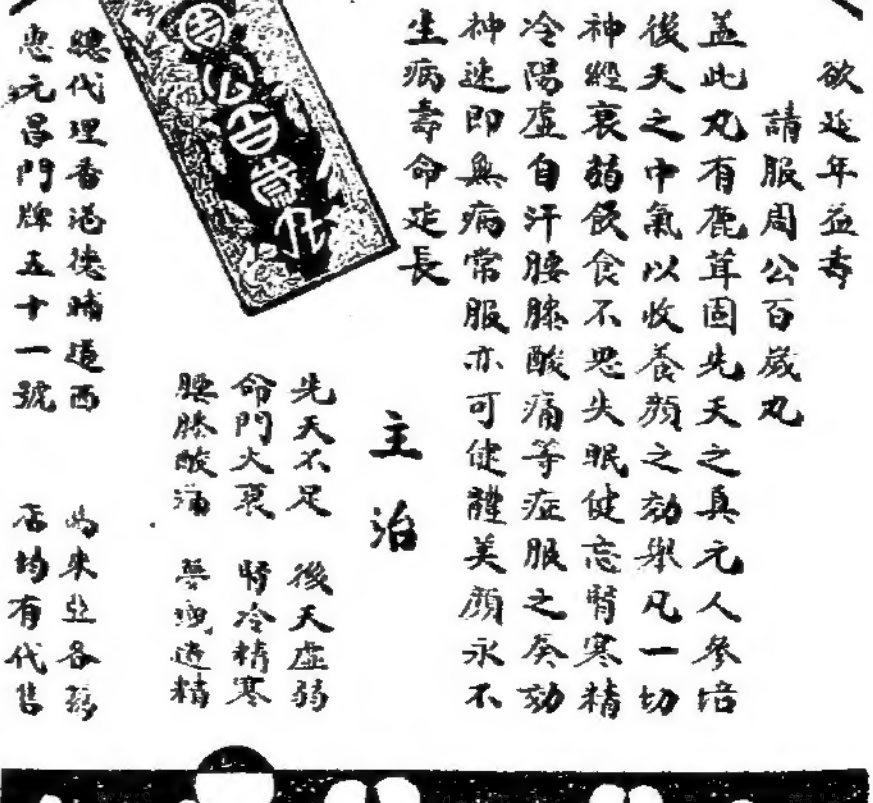 欲延年益壽
請服周公百歲丸
盖此丸有鹿茸固先天之真元人參培
後天之中氣以收養顏之効舉凡一切
神經衰弱飲食不思失眠健忘腎寒精
冷陽虛自汗腰膝酸痛等症服之奏効
神速即無病常服亦可健體美顏永不
生病壽命延長
主治
先天不足 後天虛弱
命門火衰 腎冷精寒
腰膝酸痛 夢洩遺精
周公百歲丸
總代理香港德輔道西
惠元昌門牌五十一號
馬來亞各藥
店均有代售